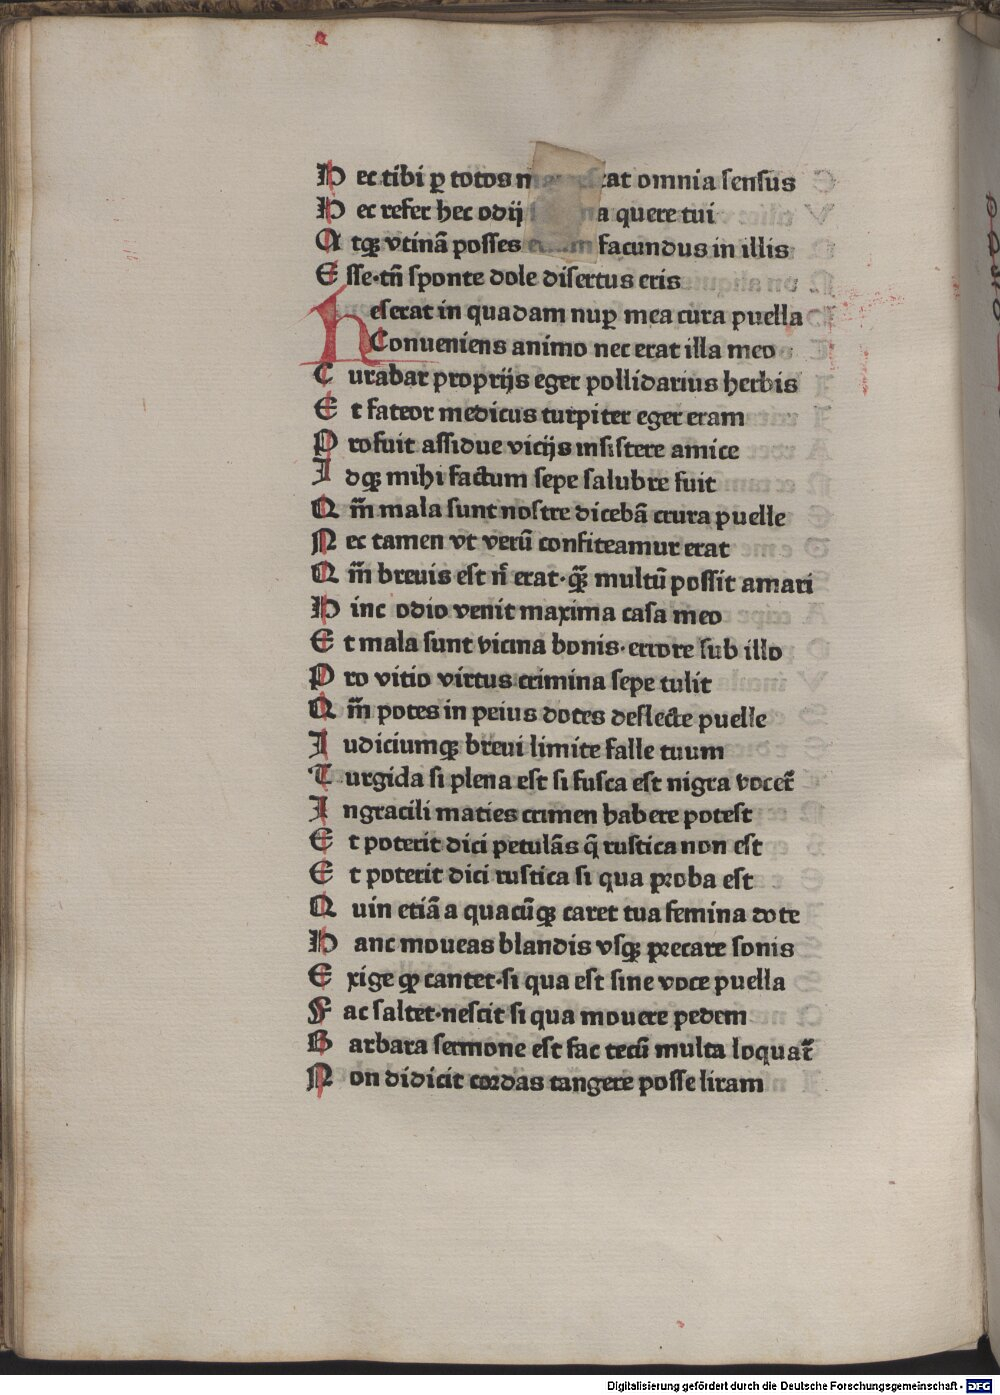 H ec tibi ꝑ totos m cat omnia sensus
H ec refer hec odij a quere tui
A tqꝫ vtinā posses etiam facundus in illis
E sse·tñ sponte dole disertus eris
H eserat in quadam nuꝑ mea cura puella
Conueniens animo nec erat illa meo
C urabar proprijs eger pollidarius herbis
E t fateor medicus turpiter eger eram
P rofuit assidue vicijs insistere amice
I dqꝫ mihi factum sepe salubre fuit
Q m̄ mala sunt nostre dicebā crura puelle
N ec tamen vt verū confiteamur erat
Q m̄ breuis est n̄ erat·qꝫ̄ multū possit amari
H inc odio venit maxima casa meo
E t mala sunt vicina bonis·errore sub illo
P ro vitio virtus crimina sepe tulit
Q m̄ potes in peius dotes deflecte puelle
I udiciumqꝫ breui limite falle tuum
T urgida si plena est si fusca est nigra vocet̄
I n gracili maties crimen habere potest
E t poterit dici petulās q̄ rustica non est
E t poterit dici rustica si qua proba est
Q uin etiā a quacūqꝫ caret tua femina dote
H anc moueas blandis vsqꝫ precare sonis
E xige qꝫ cantet·si qua est sine voce puella
F ac saltet·nescit si qua mouere pedem
B arbara sermone est fac tecū multa loquat̄
N on didicit cordas tangere posse liram
Digitalisierung gefördert durch die Deutsche Forschungsgemeinschaft - DFG